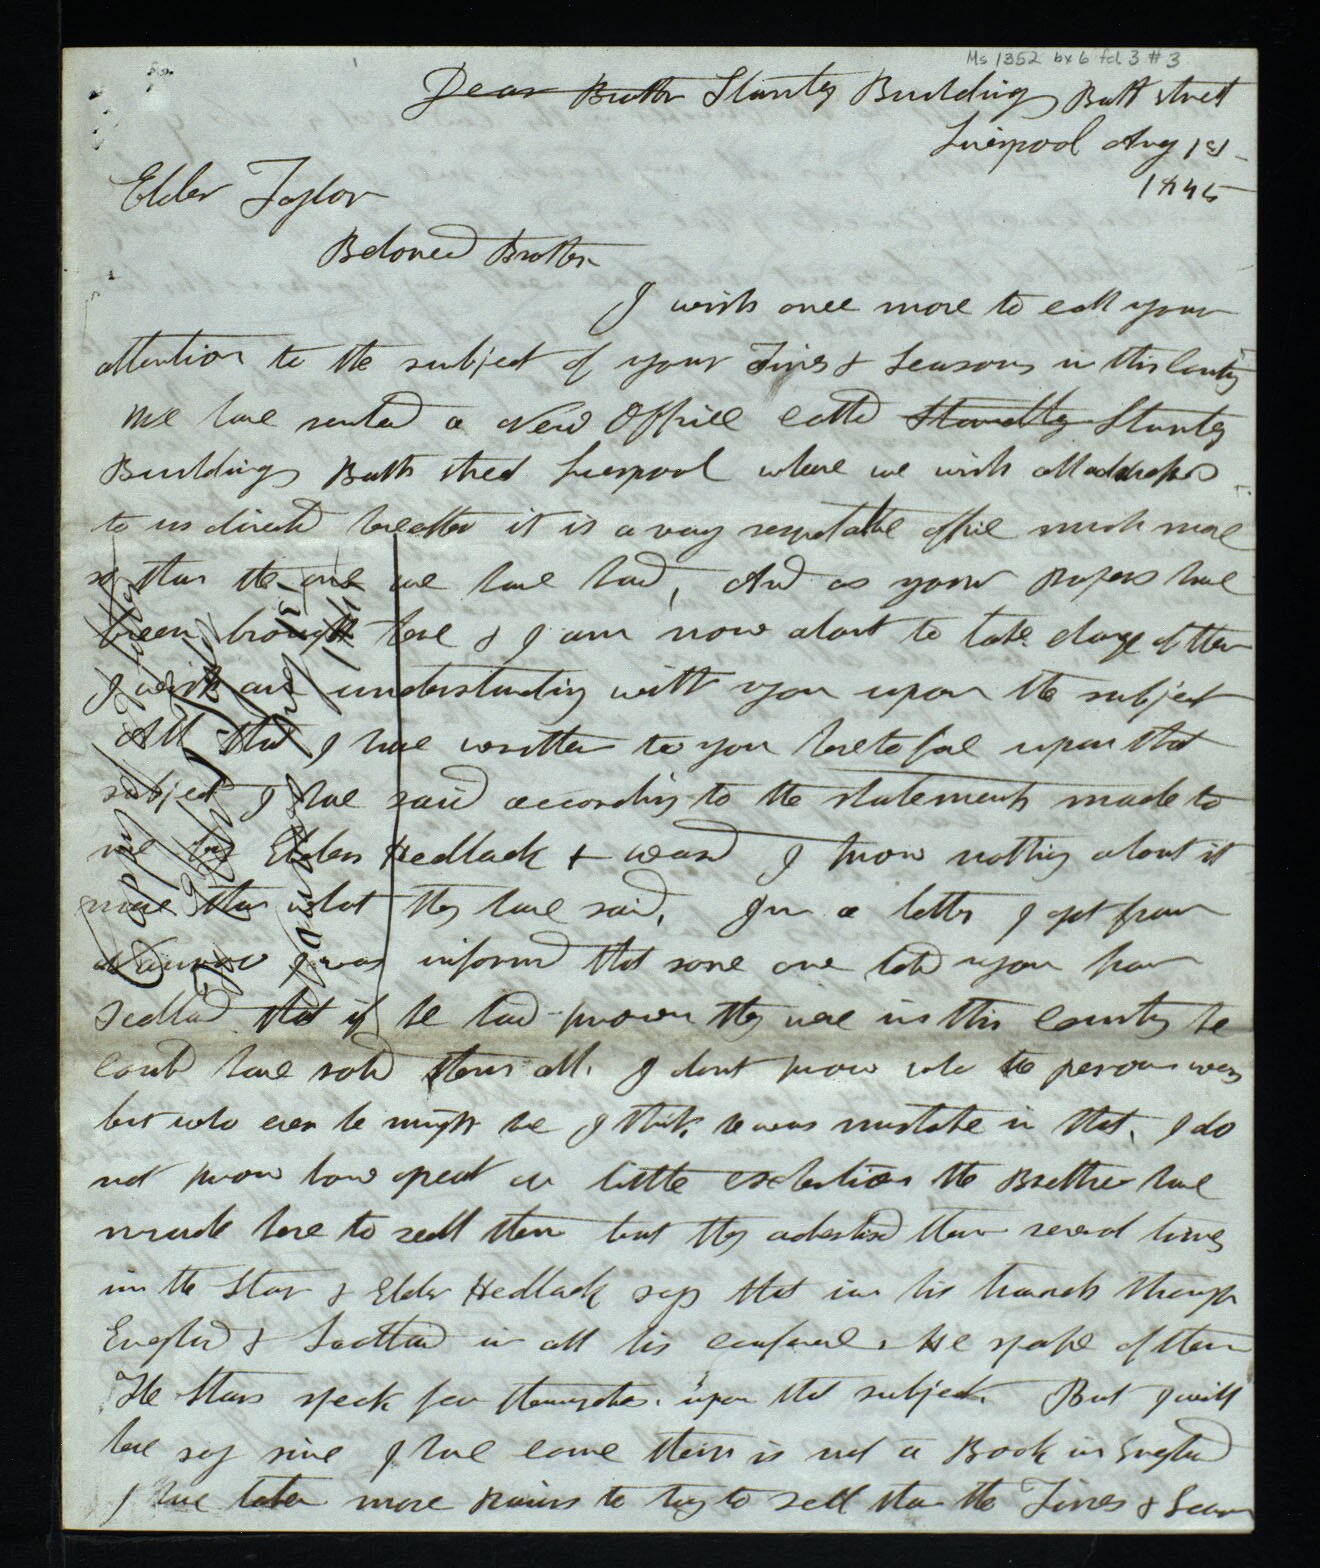 Ms 1352 bx 6 fd 3 #3
Dear Brother Stanley Buildings Bath street
Liverpool Aug 1st
1845
Elder Taylor
Beloved Brother
I wish once more to call your
attention to the subject of your Times & Seasons in this Country
We have rented a New Office called Stanley
Buildings Bath street Liverpool where we wish all
to us directed hereafter it is a very respectable office much more
so than the one we have had, And as your Papers have
been brought here & I am now about to take charge of them
I wish an understanding with you upon the subject
All that I have written to you heretofore upon that
subject I have said according to the statements made to
me by Elders Hedlock & Ward I know nothing about it
more than what they have said, In a letter I got from
Nauvoo I was informed that some one told you from
Scotland that if he had known they were in this Country he
could have sold them all. I dont know who the person was
but who ever he might be I think he was mistaken in that, I do
not know how great or little exertions the Brethren have
made here to sell them but they advertised them several times
in the Star & Elder Hedlock says that in his travels through
England & Scotland in all his conference He spoke of them
The Stars speak for themselves upon that subject. But I will
here say since I have come there is not a Book in England
I have taken more pains to try to sell than the Times & Seasons
Copy of a letter
to John Taylor
Nauvoo Aug 1st
1845